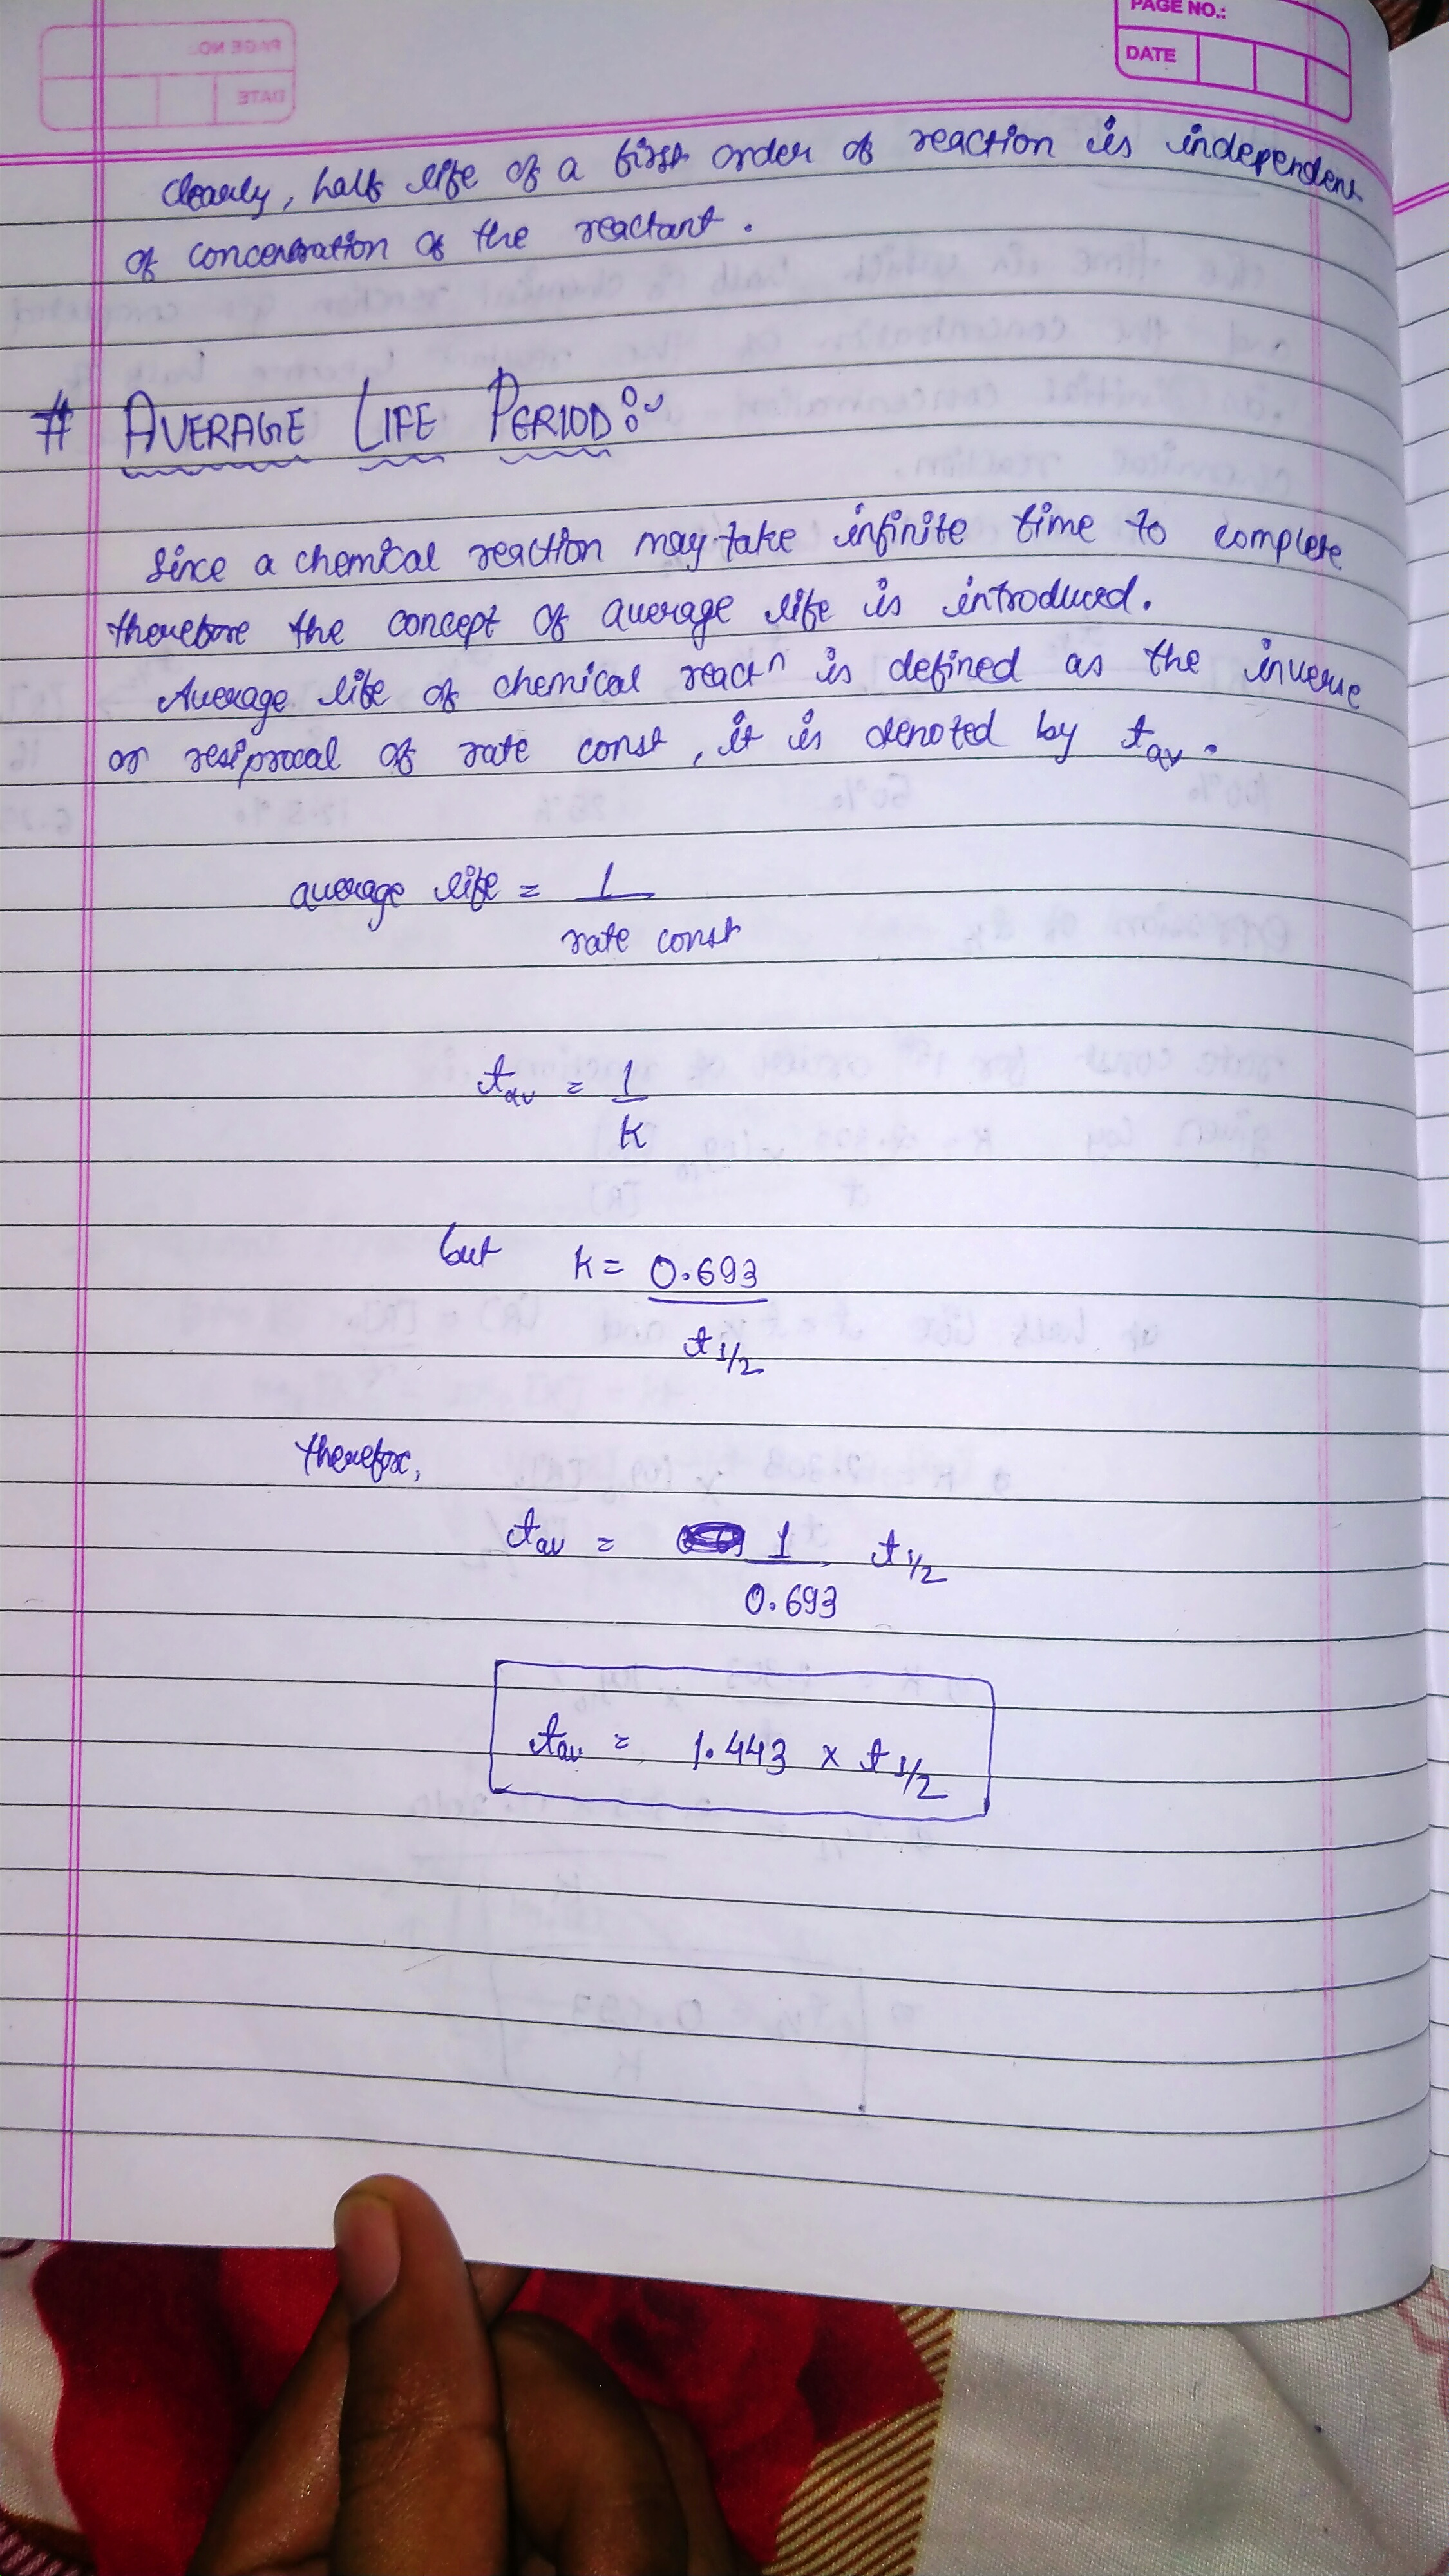 PAGE NO.:
DATE
Clearly, half life of a first order of reaction is independent
of concentration of the reactant.
# AVERAGE LIFE PERIOD:~
Since a chemical reaction may take infinite time to complete
therefore the concept of average life is introduced.
Average life of chemical reactⁿ is defined as the inverse
or resiprocal of rate const, it is denoted by t_av.
average life = 1
rate const
t_av = 1
K
but K = 0.693
t_1/2
therefore,
t_av = 1 t_1/2
0.693
t_av = 1.443 x t_1/2